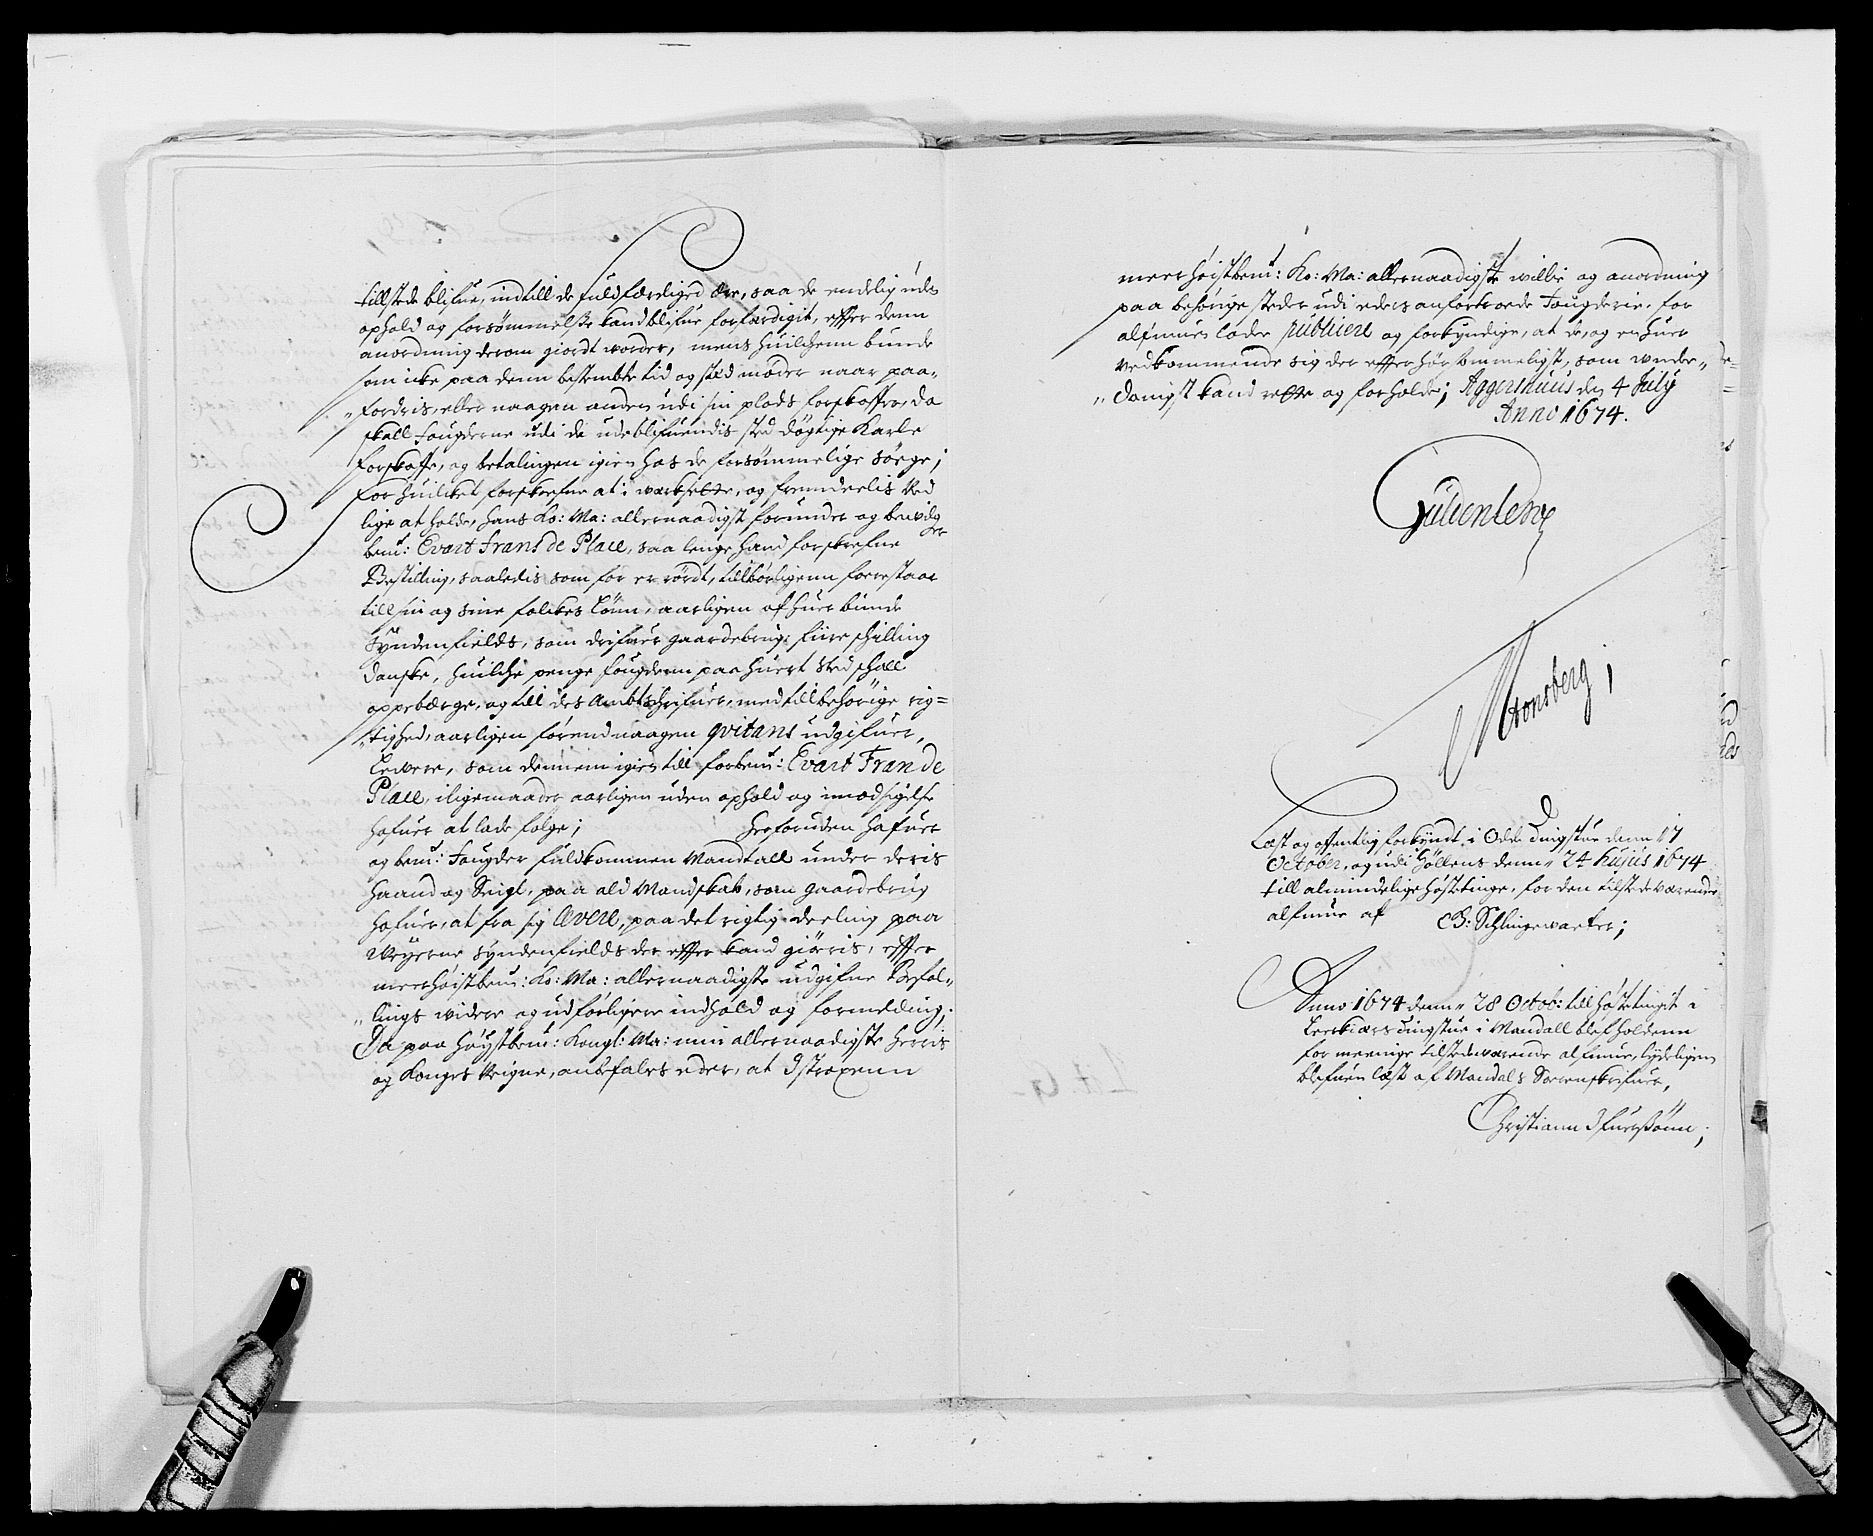 tillstede blifue, indtill de fuldferdiged ere, saa de endelig uden
ophold og forsömmelse kand blifue forferdigit, effter denn
anordning derom giordt worder, mens huilchenn bunde
som icke paa denn bestembte tid og sted möder naar paa„
„fordris, eller naagen anden udi sin plads forskaffer, da
skall fougderne udi de udeblifuendis sted dögtige Karle
forskaffe, og betalingen igien hos de forsömmelige söege;
for huilcket forskrefne at i werksette, og fremdeelis ved
lige at holde, hans Ko: Ma: allernaadigst forunder og bevilger
bem: Evart Frans de Place, saa lenge hand forskrefne
Bestilling, saaledis som for er rördt, tillbörligenn forestaar
till sin og sine folckes lönn, aarligen af huer bunde
Syndenfields, som drifuer gaardebrug, fiire schilling
danske, huilche penge fougdern paa huert sted schall
oppebærge, og till des Ambtschrifuer, med tillbehörige rig=
„tighed, aarligen förend naagen qvitans udgifuer,
Levere, som dennem igien till forbem: Evart Fran de
Place, iligemaader aarligen uden ophold og imodsigelse
hafuer at lade fölge; Herforuden hafuer
og bem: Fougder fuldkommen Mandtall under deris
haand og Seigl, paa ald Mandskab, som gaardebrug
hafuer, at fra sig levere, paa det rigtig deeling paa
Weyerne Syndenfields der effter kand giöris, effter
meerhöistbem: Ko: Ma: allernaadigste udgifne Befal„
„lings widere og udförligere indhold og formelding;
Da paa Höystbem: Kongl: Ma: min allernaadigste Herris
og Konges Weigne, anbefales eder, at I straxenn
meerhöistbem: Ko: Ma: allernaadigste willie og anordning
paa behörige steder udi eders anfortroede Fougderie, for
alfmuen lader publicere og forkyndige, at de, og enhuer
vedkommende sig der effterhör kommeligst, som under„
„danigst kand rette og forholde; Aggershuus den 4 July
Anno 1674.
Güldenlewe
Mtonsberg;
Læst og offentlig forkyndt i Odde tingstue denn 17
October, og udi Höllens denn 24 hujus 1674
till almindelige höstetinge, for den tilstedeværende
alfmue af B: Schlingewaeter;
Anno 1674 denn 28 Octob: till höstetingit i
tingstue i Mandall blef holdenn
for meenige tilstedeværende alfmue, lydeligen
blefuen læst af Mandals Sorenskrifuer,
Christiann Ifuerssönn;